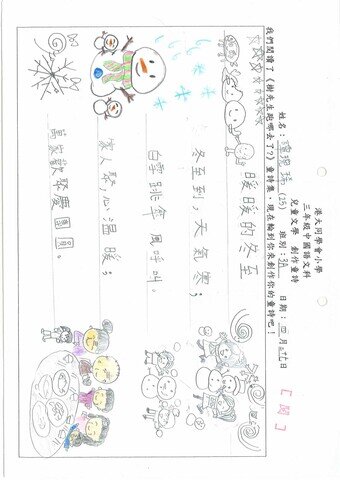 港大同學會小學
三年級中國語文科
兒童文學 創作童詩
姓名: (25) 班別:3A 日期:四月 日
[閱]
我們閱讀了《樹先生跑哪去了?》童詩集,現在輪到你來創作你的童詩吧!
暖暖的冬至
冬至到,天氣寒;
白雪跳傘風呼叫。
家人聚,心溫暖;
萬家歡聚慶團圓。